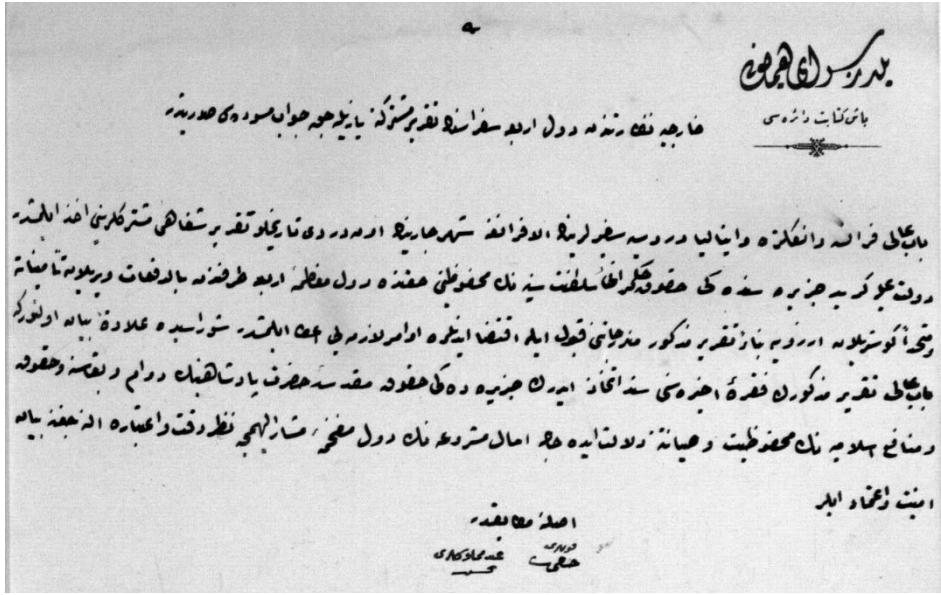 يلديز سراى همايونى
باش كتابت دائره سى
خارجيه نظارتندن دول اربعه سفراسنه تقرير مشتركه يازيله جق جواب مسوده سى صورتيدر
باب عالى فرانسه وانكلتره وايتاليا وروسيه سفيرلرينك الافرانغه شهر حاريك اون دردى تاريخلو تقرير شفاهئ مشتركلرينى اخذ ايلمشدر
دولت عليه كريد جزيره سنده كى حقوق حكمرانئ سلطنت سنيه نك محفوظيتى حقنده دول معظمه اربعه طرفندن بالدفعات ويريلان تأميناته
ومتحداً كوستريلان ارزويه بناءً تقرير مذكور مندرجاتنى قبول ايله اقتضا ايدنلره اوامر لازمه يى اعطا ايلمشدر شوراسى ده علاوةً بيان اولنوركه
باب عالى تقرير مذكورك فقرۀ اخيره سنى سند اتخاذ ايدرك جزيره ده كى حقوق مقدسۀ حضرت پادشاهينك دوام وبقاسنه وحقوق
ومنافع اسلاميه نك محفوظيت وصيانتنه دلالت ايده جك آمال مشروعه نك دول مفخمۀ مشار اليهمجه نظر دقت واعتباره النه جغنه بيان
امنيت واعتماد ايلر
اصلنه مطابقدر